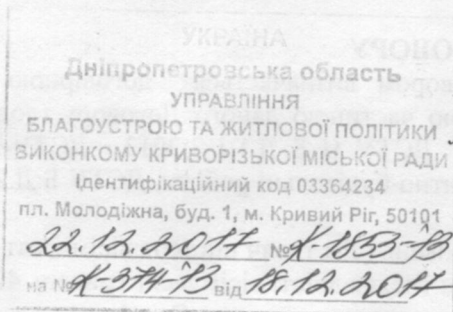 УКРАЇНА
Дніпропетровська область
УПРАВЛІННЯ
БЛАГОУСТРОЮ ТА ЖИТЛОВОЇ ПОЛІТИКИ
ВИКОНКОМУ КРИВОРІЗЬКОЇ МІСЬКОЇ РАДИ
Ідентифікаційний код 03364234
пл. Молодіжна, буд. 1, м. Кривий Ріг, 50101
22.12.2017 № К-1853-ПЗ
на № К-374-ПЗ від 18.12.2017